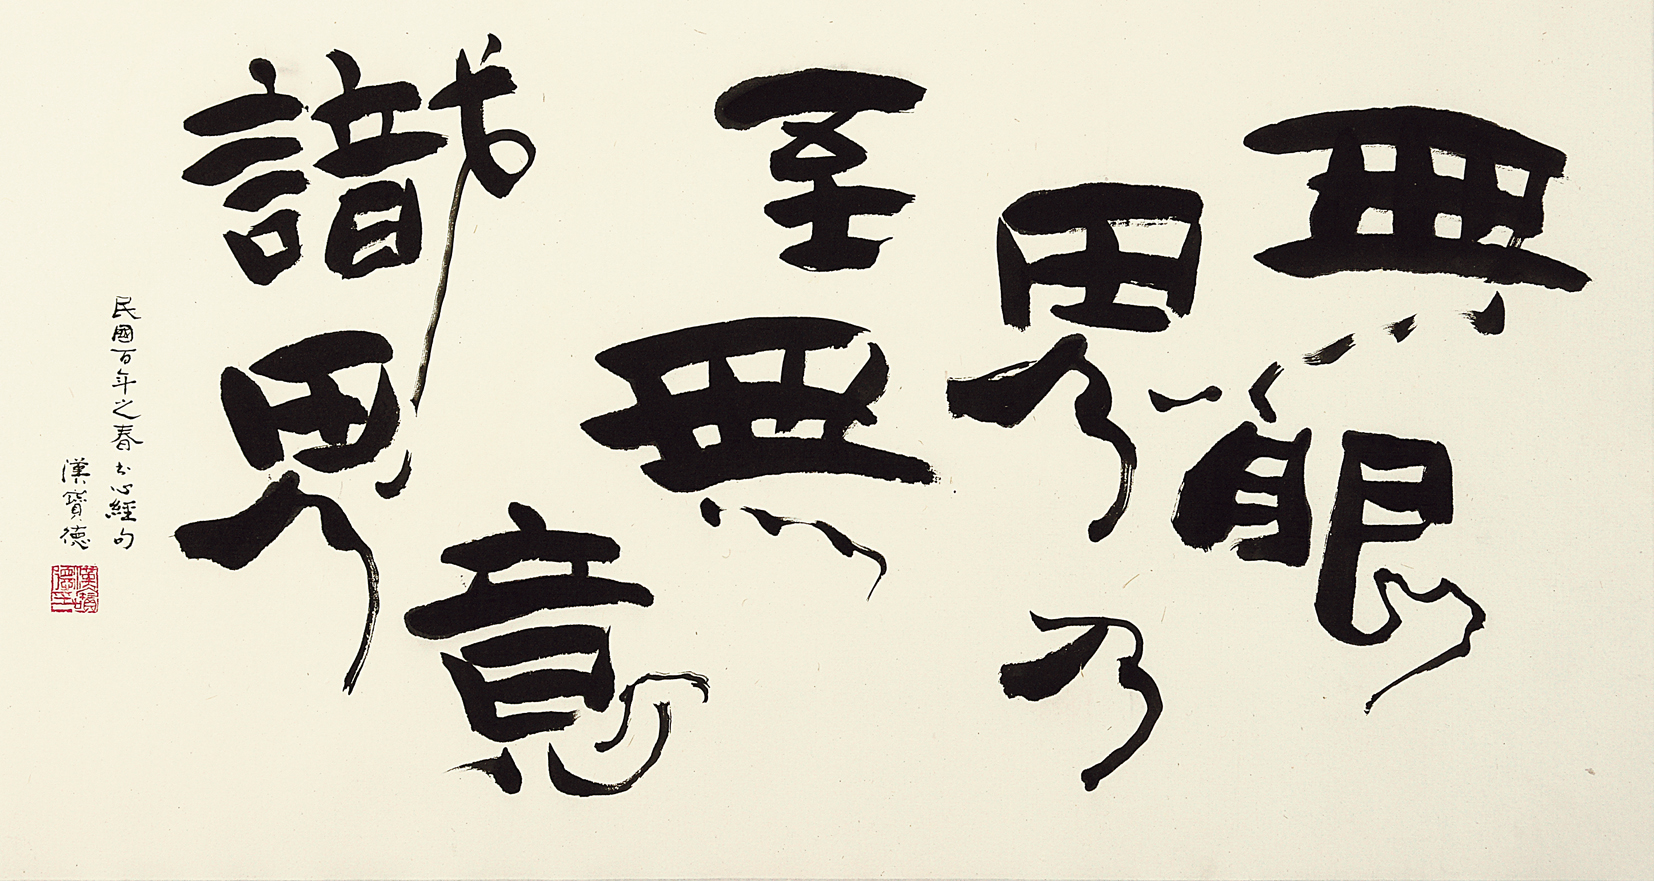 無眼
界乃
至無
意
識界
民國百年之春書心經句
漢寶德
漢寶德印